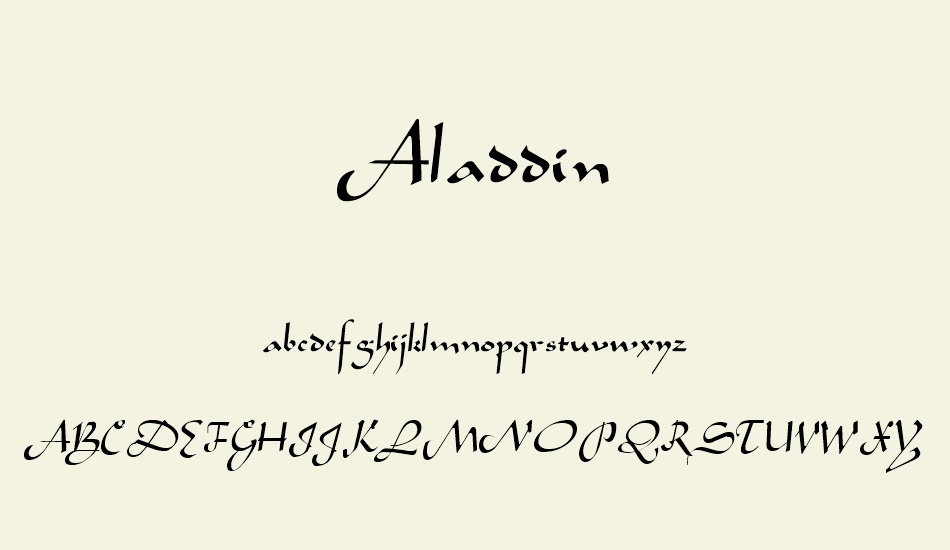 Aladdin
abcdefghijklmnopqrstuvwxyz
ABCDEFGHIJKLMNOPQRSTUVWXY